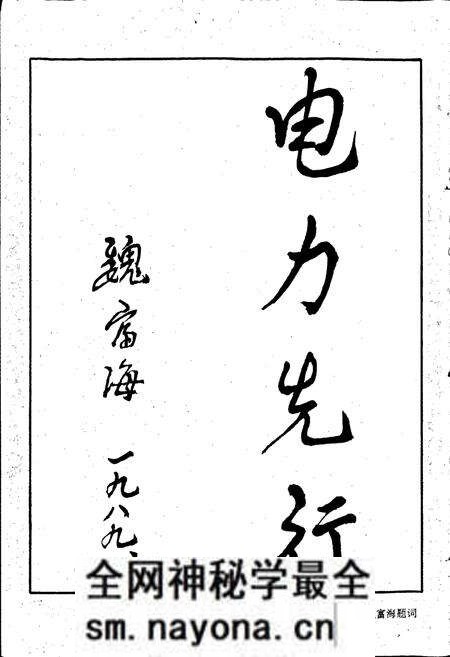 电力先行
魏富海 一九八九、
富海题词
全网神秘学最全
sm.nayona.cn